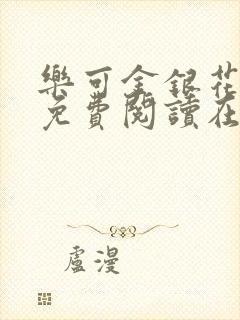 樂可金銀花
免費閱讀在
盧漫